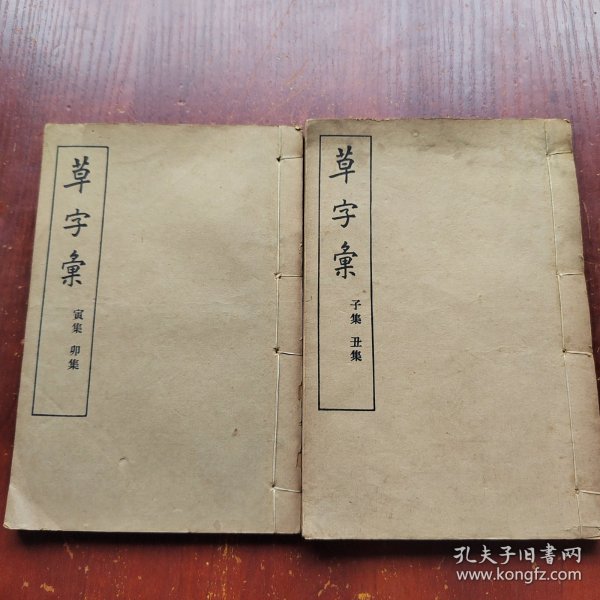 草字彙
寅集 卯集
草字彙
子集 丑集
孔夫子旧书网
www.kongfz.com